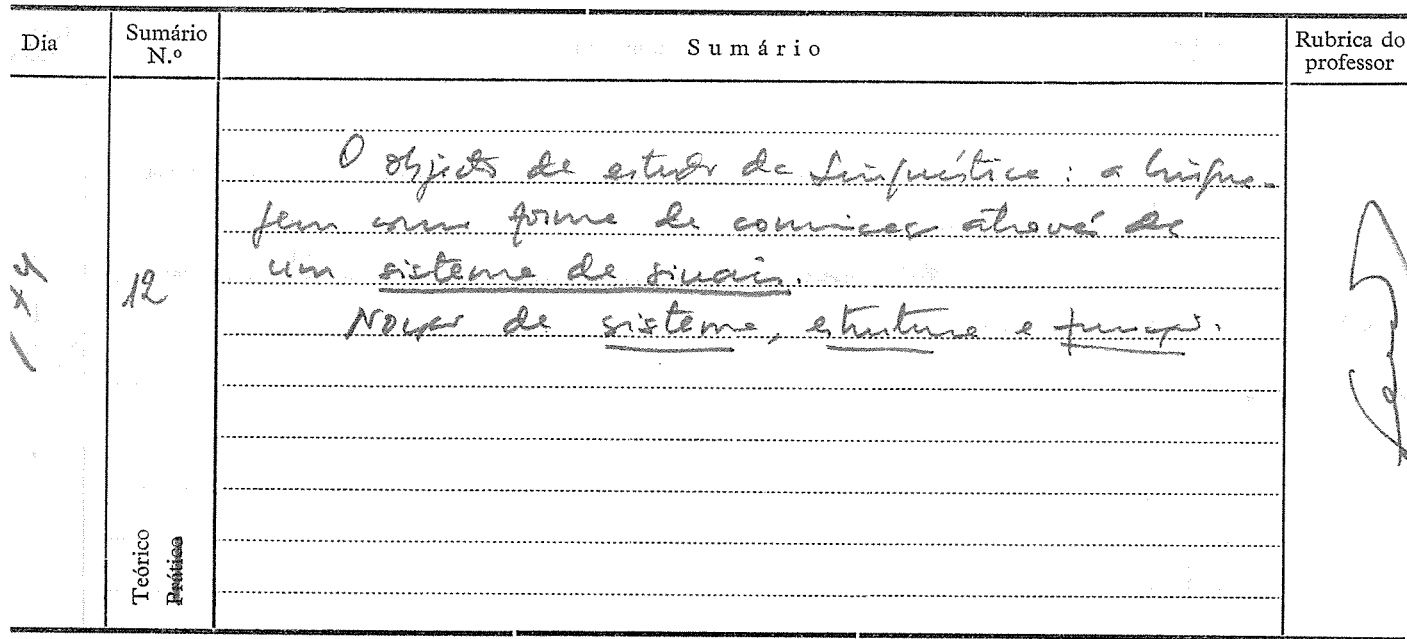 Dia
Sumário N.º
Sumário
Rubrica do professor
12
O objecto de estudo da Linguística: a lingua-
gem como forma de comunicação através de
um sistema de sinais.
Noções de sistema, estrutura e função.
Teórico
Prático